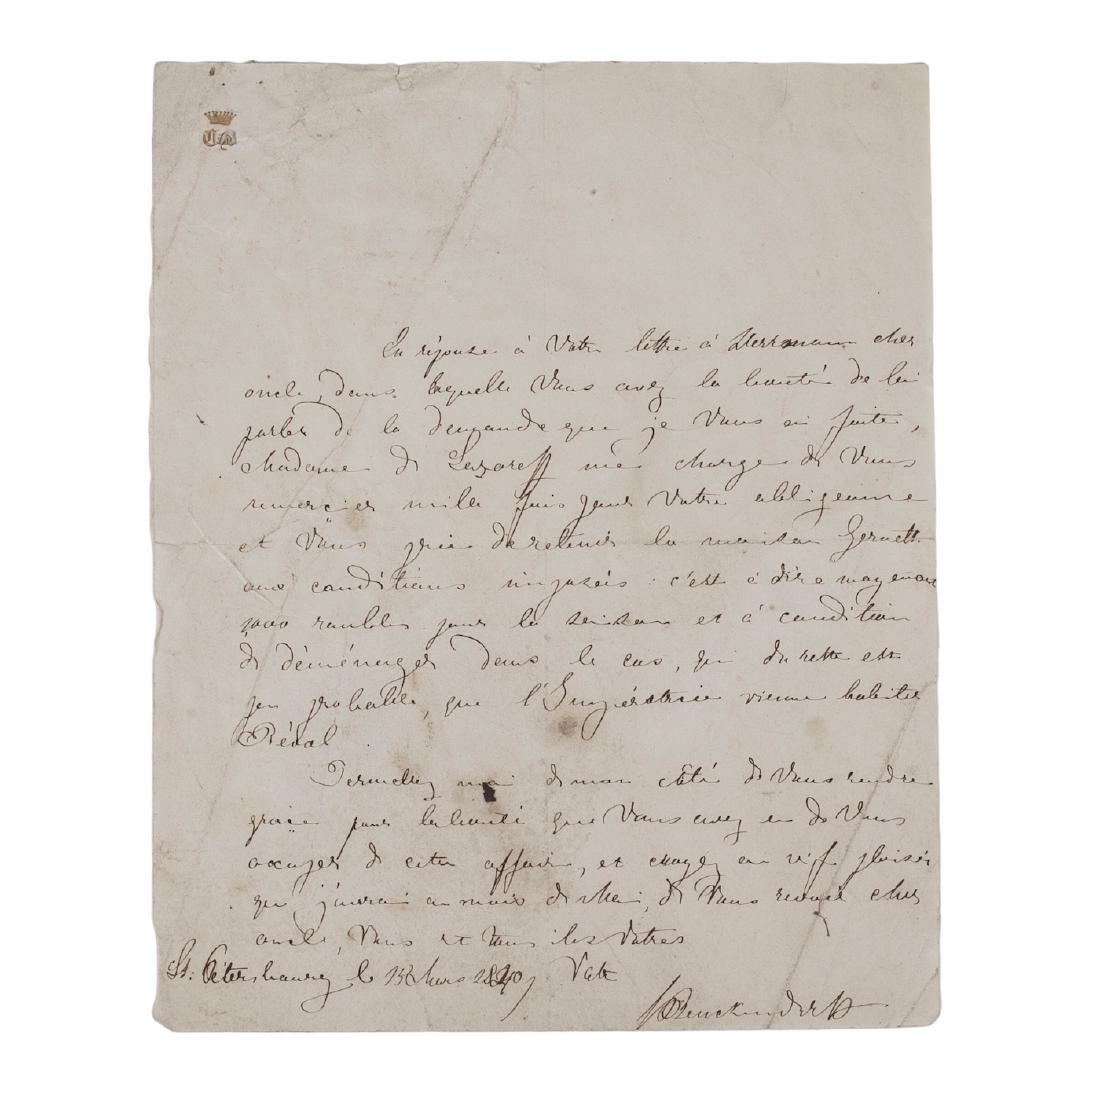 En réponse à Votre lettre à Herrmann cher
oncle, dans laquelle Vous avez la bonté de lui
parler de la demande que je Vous ai faite,
Madame de Lazareff me charge de Vous
remercier mille fois pour Votre obligeance
et Vous prie de retenir la maison
aux conditions imposées : c'est à dire moyenant
1000 roubles pour la saison et à condition
de déménager dans le cas, qui du reste est
peu probable, que l'Impératrice vienne habiter
Réval.
Permettez moi de mon côté de Vous rendre
grâce pour la bonté que Vous avez eu de Vous
occuper de cette affaire, et croyez au vif plaisir
que j'aurai au mois de Mai, de Vous revoir cher
oncle, Vous et tous les Votres
St. Petersbourg le Mars 1840 Votre
CBenckendorff